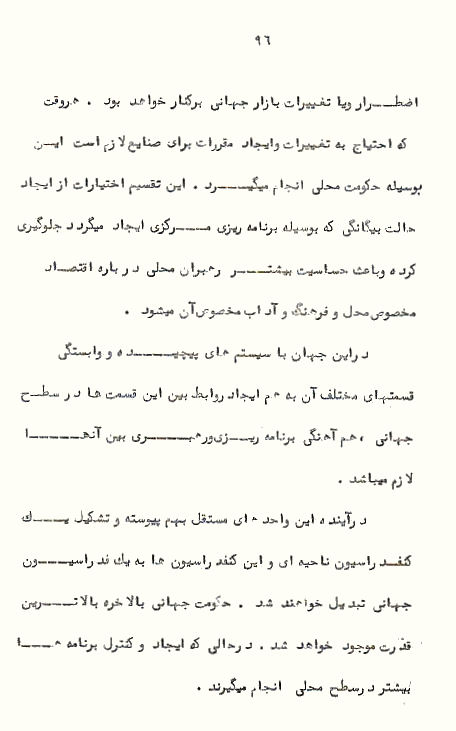 ٩٦
اضطـــرار ویا تغییرات بازار جهانی برکنار خواهد بود . هروقت
که احتیاج به تغییرات وایجاد مقررات برای صنایع لازم است ایــن
بوسیله حکومت محلی انجام میگیــــرد . این تقسیم اختیارات از ایجاد
حالت بیگانگی که بوسیله برنامه ریزی مـــرکزی ایجاد میگردد جلوگیری
کرده وباعث حساسیت بیشتـــر رهبران محلی درباره اقتصــاد
مخصوص محل و فرهنگ و آداب مخصوص آن میشود .
دراین جهان با سیستم های پیچیـــــده و وابستگی
قسمتهای مختلف آن به هم ایجاد روابط بین این قسمت ها در سطــح
جهانی ، هم آهنگی برنامه ریــزی ورهبــــری بین آنهـــــا
لازم میباشد .
درآینده این واحدهای مستقل بهم پیوسته و تشکیل یـــك
کنفــدراسیون ناحیه ای و این کنفدراسیون ها به یك فدراسیـــون
جهانی تبدیل خواهند شد . حکومت جهانی بالاخره بالاتــــرین
قدرت موجود خواهد شد . درحالی که ایجاد و کنترل برنامه هـــا
بیشتر درسطح محلی انجام میگیرند .